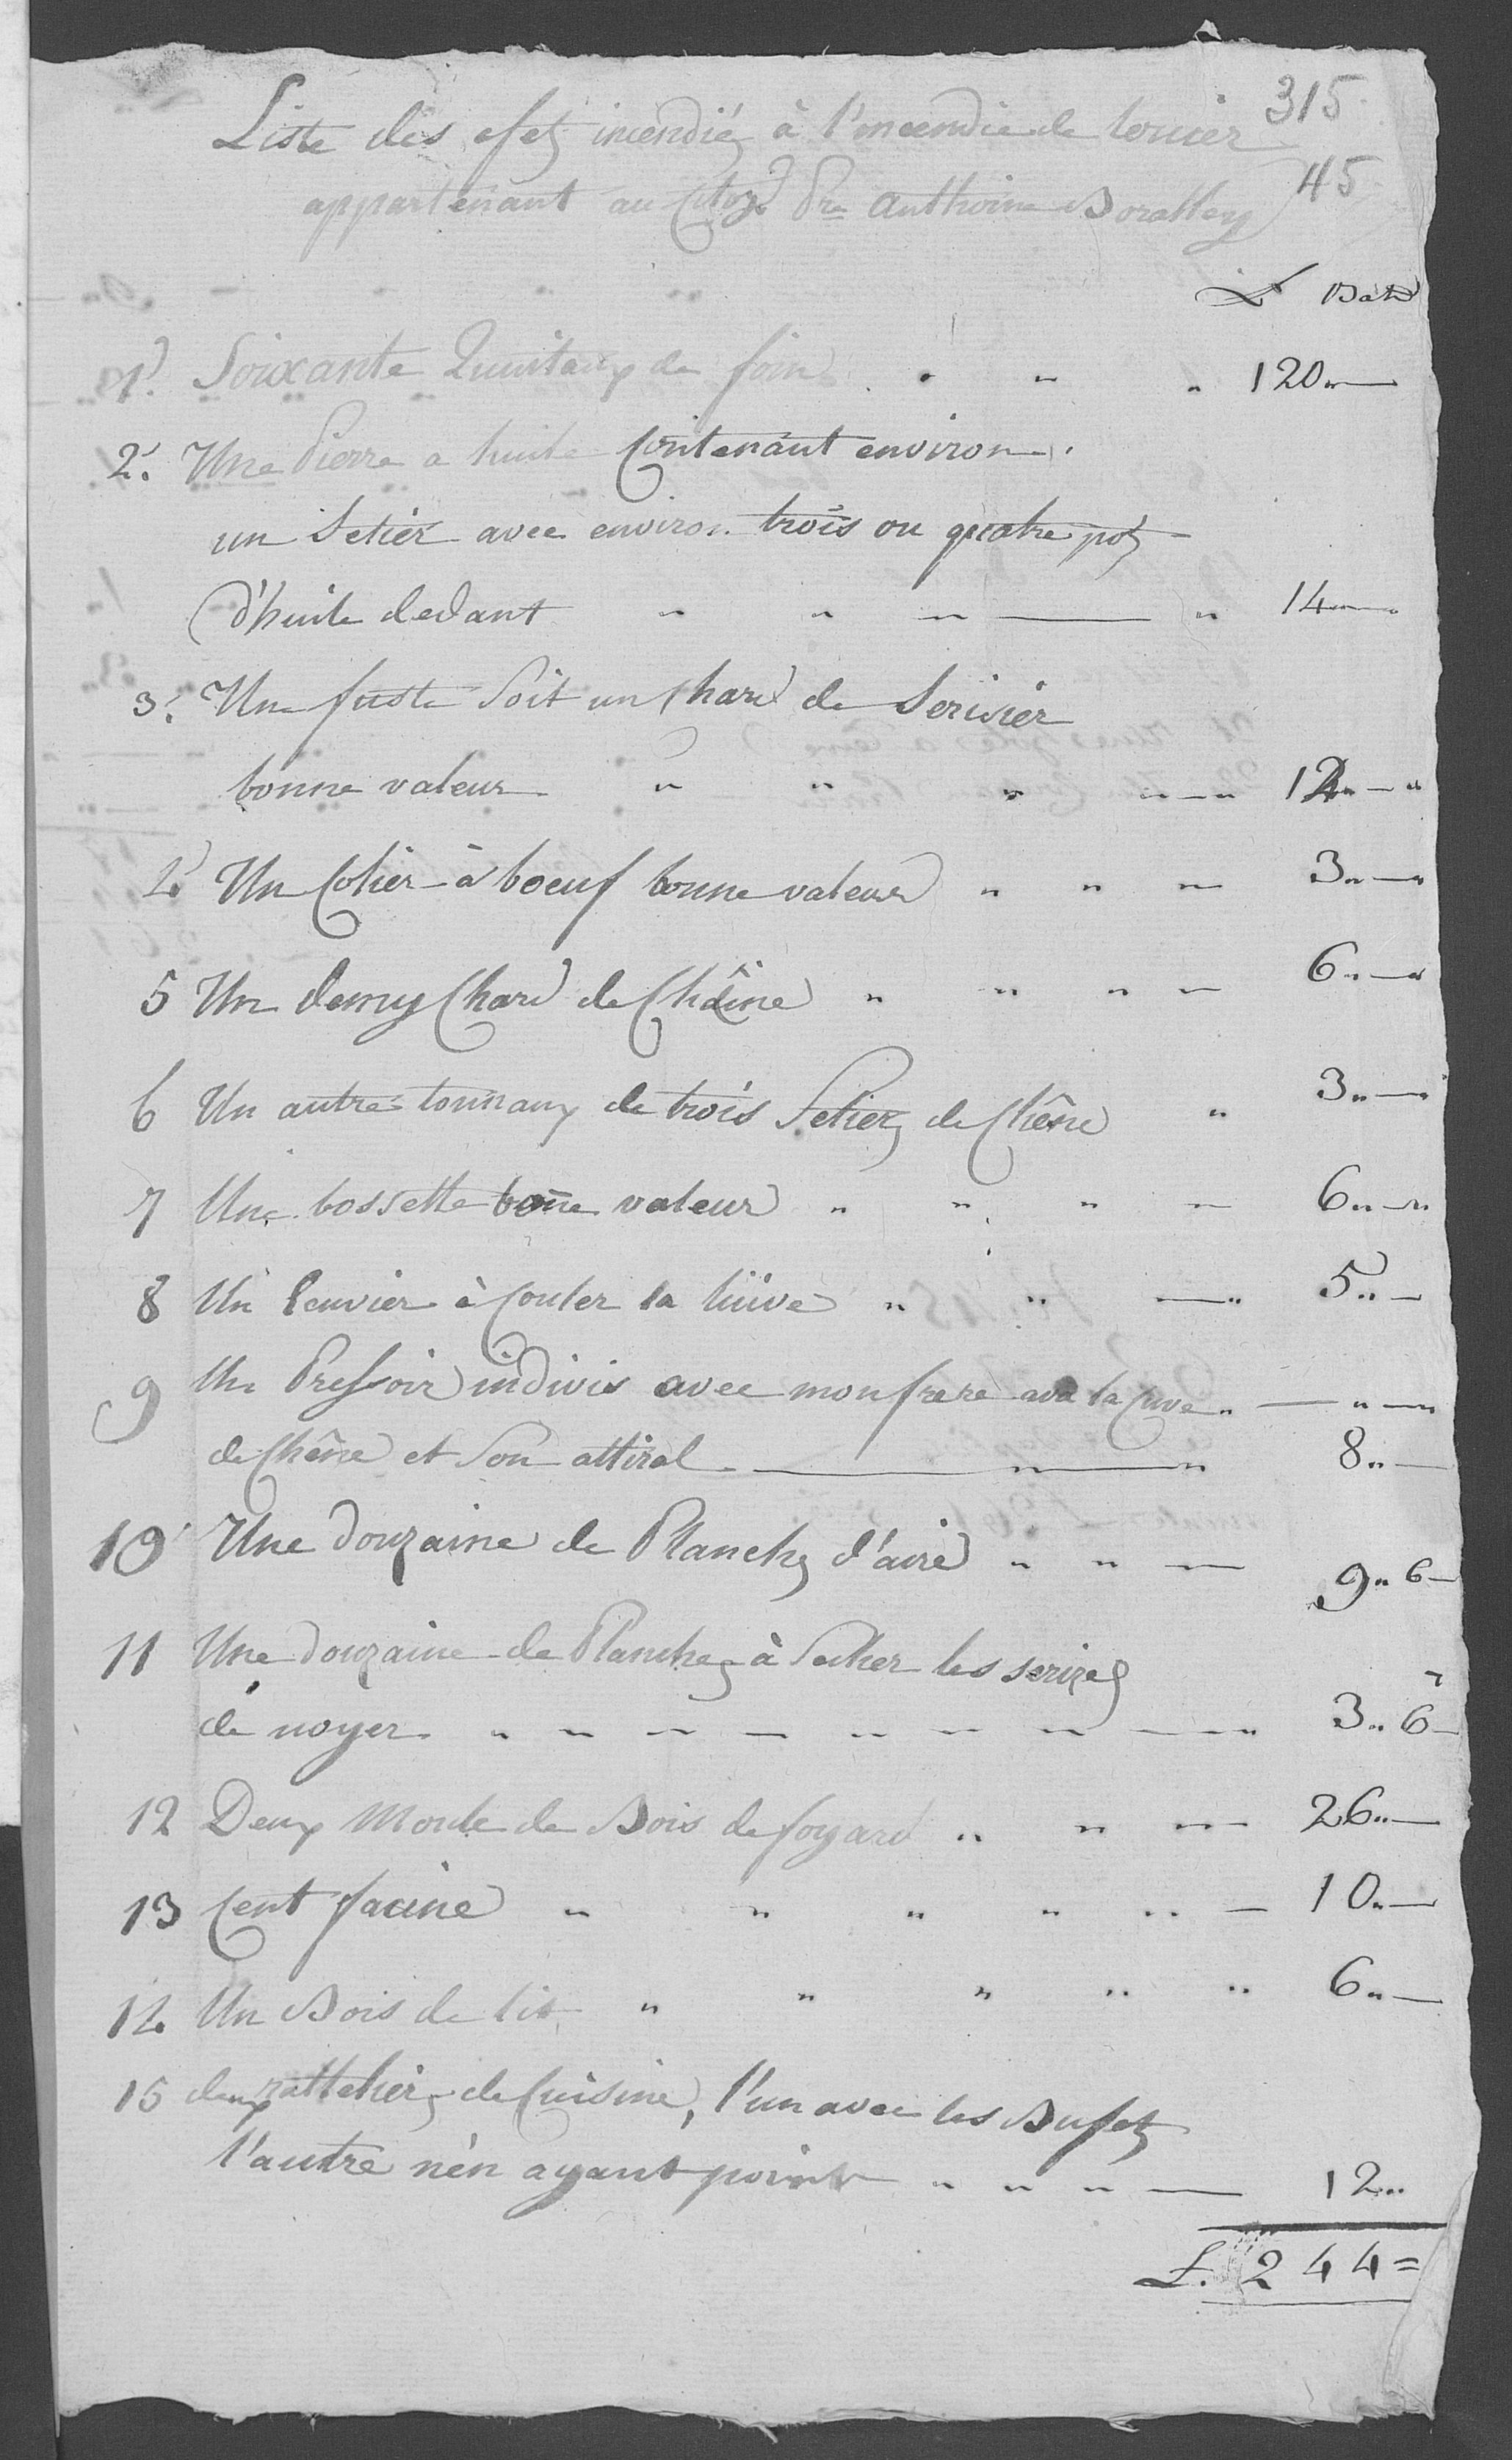 315
Liste des efets incendiéz à l'incendie de
45
appartenant au Citoyn Pre Anthoine Borattey
L Batz
1. Soixante Quintaux de foin " " " 120"—
2. Une Pierre a huile Contenant environ
un Setier avec environ trois ou quatre potz
d'huile dedant " " " — " 14"—
3. Une fuste Soit un Chard de Serisier
bonne valeur " " " " — " 12"—"
4. Un Colier à boeuf bonne valeur " " " 3"—"
5 Un demy Chard de Chaîne " " " " 6"—"
6 Un autre tonnaux de trois Setierz de Chêne " 3"—"
7 Une bossette bone valeur " " " " 6"—"
8 Un Leuvier à Couler la lüive " " —" 5"—
9 Un Pressoir indivis avec mon frere la Cuve " — " —
de Chêne et Son attiral — " — " 8"—
10 Une douzaine de Planchz d'aire " " — 9" 6—
11 Une douzaine de Planchez à Secher les serizes
de noyer " " " " " " " " —" 3" 6—
12 Deux Moule de Bois de foyard " " " — 26"—
13 Cent facine " " " " " — 10"—
14 Un Bois de lit " " " " " 6"—
15 deux rattelierz de Cuisine, l'un avec les Bufetz
l'autre n'én ayant point " " " — 12"
L. 244=